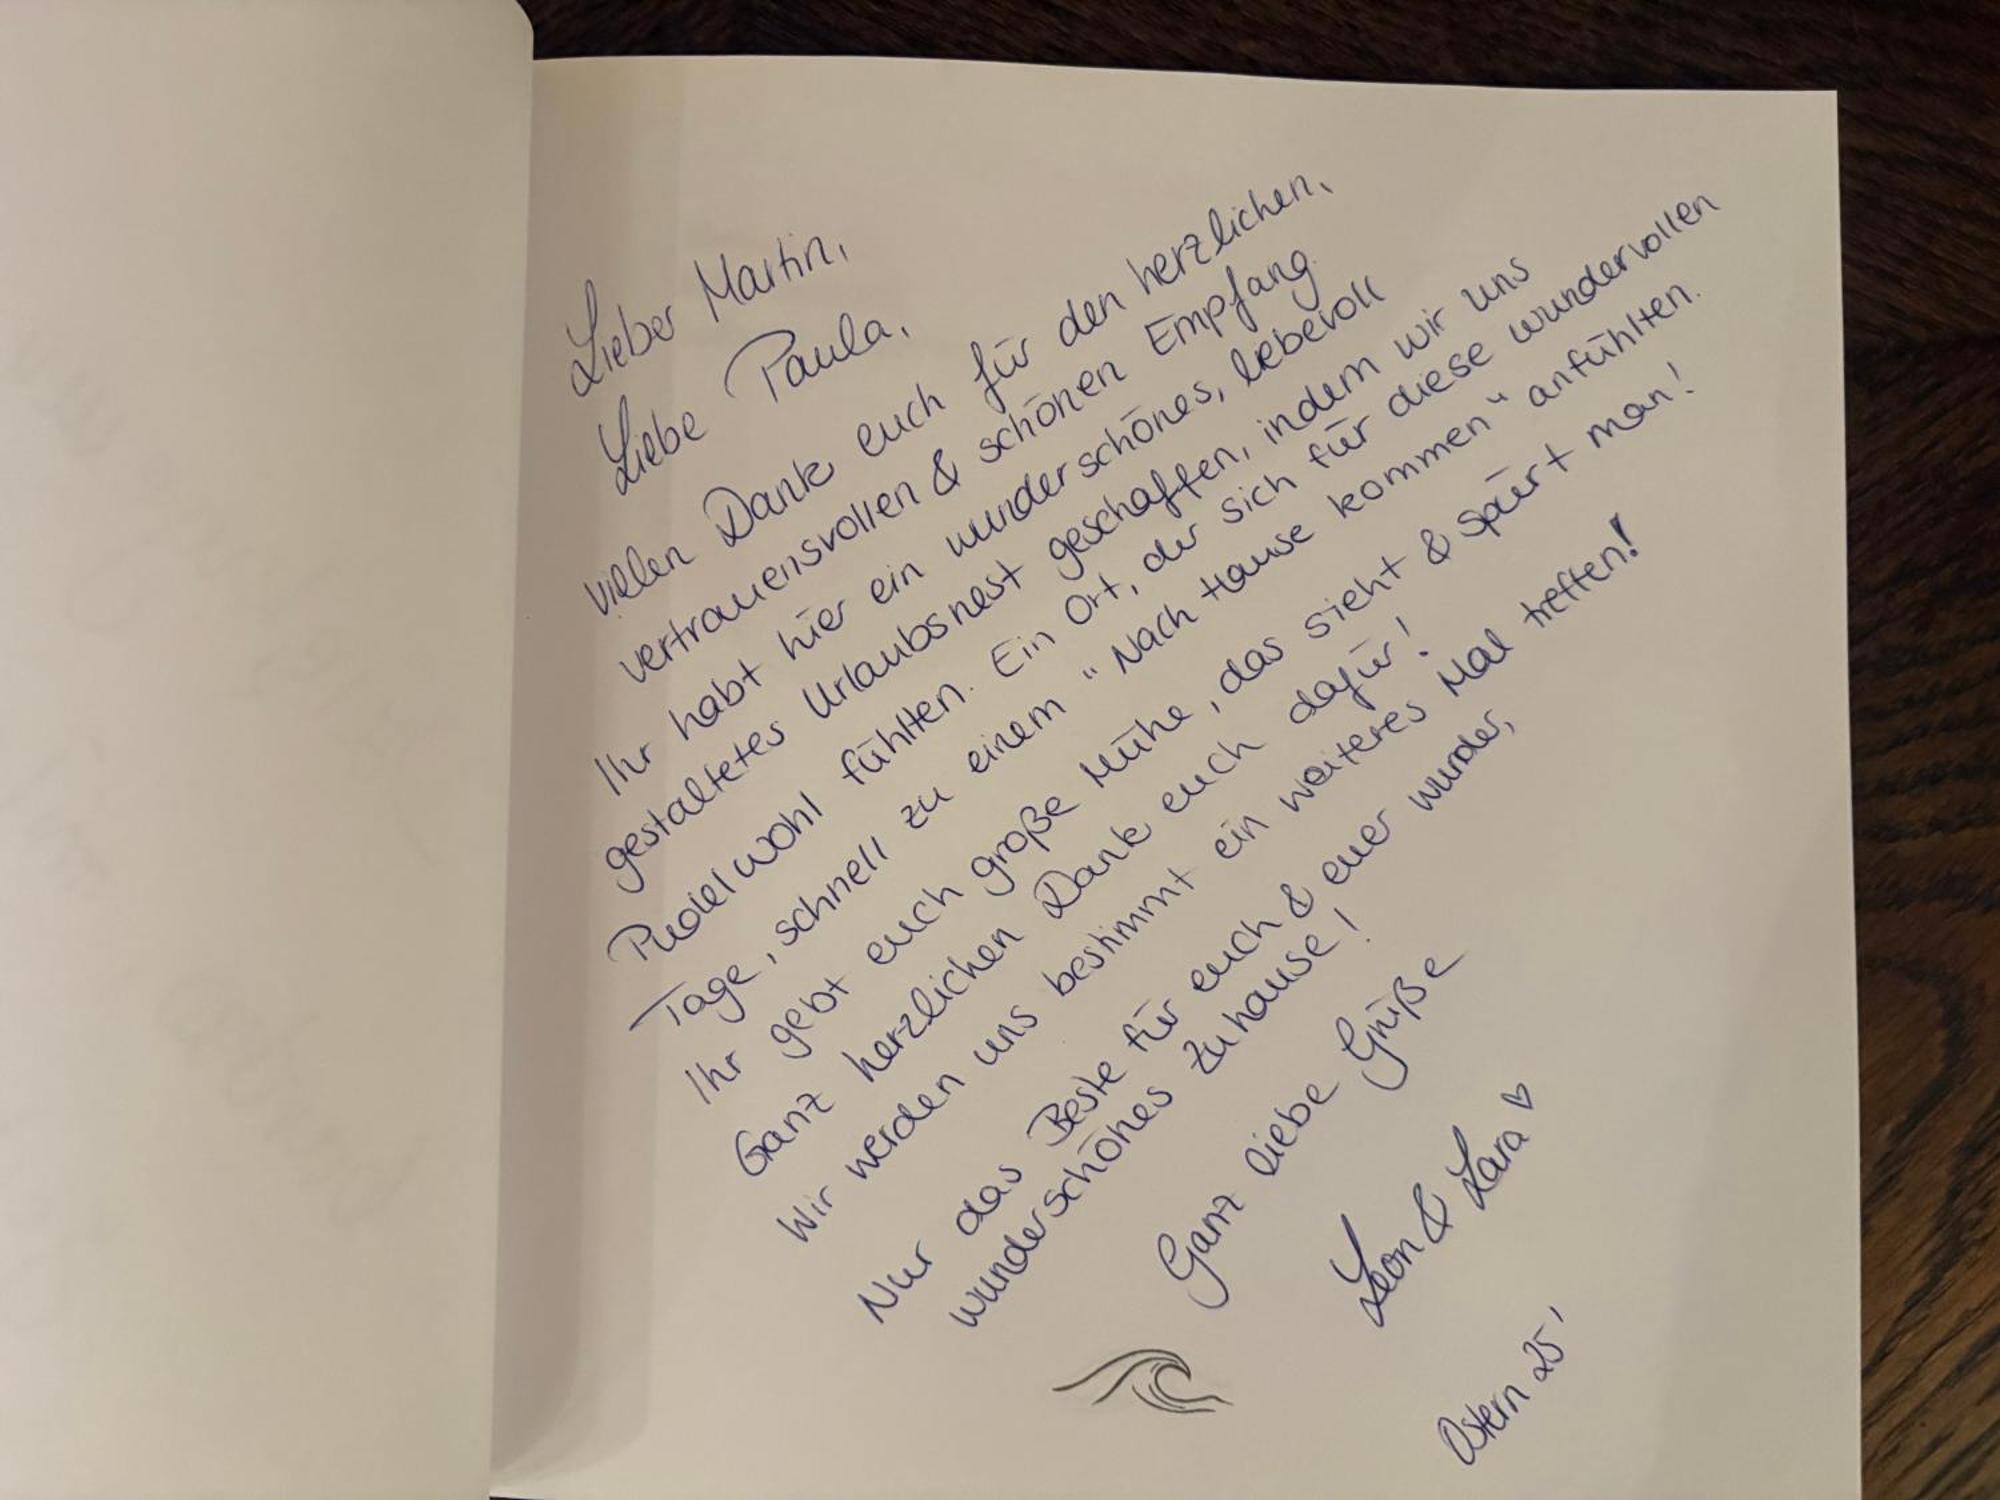 Lieber Martin,
Liebe Paula,
vielen Dank euch für den herzlichen,
vertrauensvollen & schönen Empfang.
Ihr habt hier ein wunderschönes, liebevoll
gestaltetes Urlaubsnest geschaffen, indem wir uns
Pudelwohl fühlten. Ein Ort, der sich für diese wundervollen
Tage, schnell zu einem "Nach Hause kommen" anfühlten.
Ihr gebt euch große Mühe, das sieht & spürt man!
Ganz herzlichen Dank euch dafür!
Wir werden uns bestimmt ein weiteres Mal treffen!
Nur das Beste für euch & euer wunder,
wunderschönes Zuhause!
Ganz liebe Grüße
Leon & Lara ♡
Ostern 25'